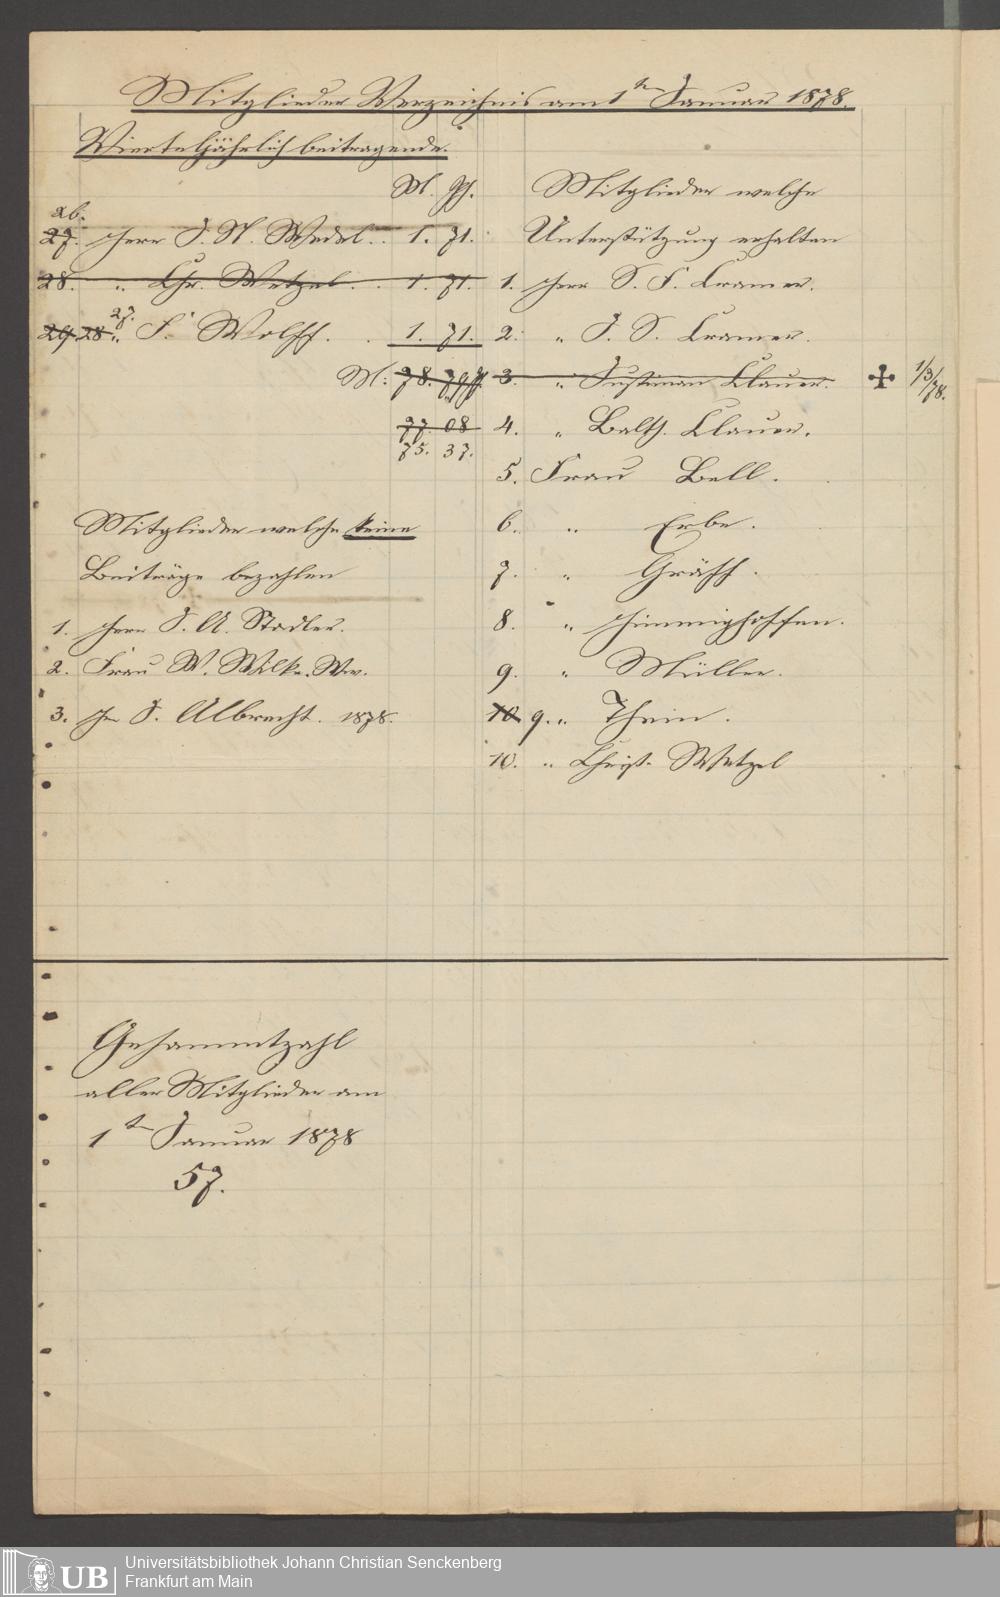 Mitglieder Verzeichnis am 1ten Januar 1878.
Vierteljährlich beitragende.
M. Pf.
26.
27. Herr J. N. Wedel.. 1. 71.
28. " Chr. Wetzel. . 1. 71.
27.
29. 28 " F. Wolff. . 1. 71.
M: 78. 79 Pf.
77. 08
75. 37.
Mitglieder welche keine
Beiträge bezahlen
1. Herr J. A. Stadler.
2. Frau W. Wilke. Wwe.
3. Hr J. Albrecht. 1878.
Mitglieder welche
Unterstützung erhalten
1. Herr S. F. Cramer.
2. " J. S. Cramer.
3. " Justinian Clauer. 1/3/78.
4. " Balth. Clauer.
5. Frau Bell.
6. " Erbe.
7. " Gräff.
8. " Himmighoffen.
9. " Müller.
10 9. " Thein.
10. " Christ. Wetzel
Gesammtzahl
aller Mitglieder am
1ten Januar 1878
57.
UB
Universitätsbibliothek Johann Christian Senckenberg
Frankfurt am Main